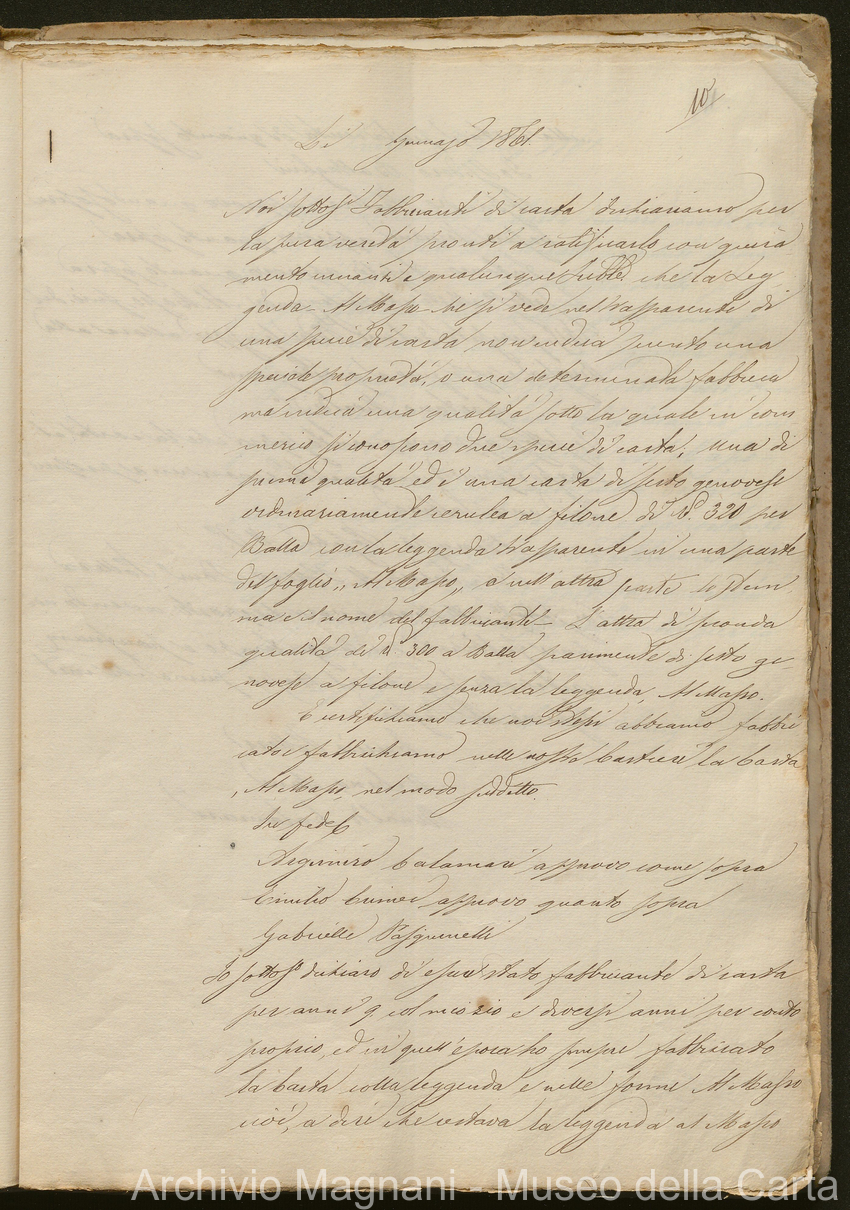 10
Lì Gennajo 1861.
Noi sottosti Fabbricanti di carta dichiariamo per
la pura verità pronti a ratificarlo con giura
mento innanzi a qualunque Tribble che la Leg
genda Al Masso che si vede nel trasparente di
una specie di carta non indica punto una
speciale proprietà, o una determinata fabbrica
ma indica una qualità sotto la quale in com
mercio si conoscono due specie di carta, una di
prima qualità ed è una carta di sesto genovese
ordinariamente cerulea a filone di 320 per
Balla con la leggenda trasparente in una parte
del foglio „Al Masso„ e nell'altra parte lo stem
ma e il nome del fabbricante. L'altra di seconda
qualità di 300 a Balla parimente di sesto ge
novese a filone e senza la leggenda Al Masso.
E certifichiamo che noi stessi abbiamo fabbri
cato e fabbrichiamo nelle nostre Cartiere la Carta
Al Masso nel modo suddetto.
In fede
Argimiro Calamari approvo come sopra
Emilio approvo quanto sopra
Gabriello Pasquinelli
Io sottosto dichiaro di esser stato fabbricante di carta
per anni 9 col mio zio e diversi anni per conto
proprio, ed in quell'epoca ho sempre fabbricato
la Carta colla leggenda e nelle forme Al Masso
cioè, a dire che restava la leggenda al Masso
Archivio Magnani - Museo della Carta